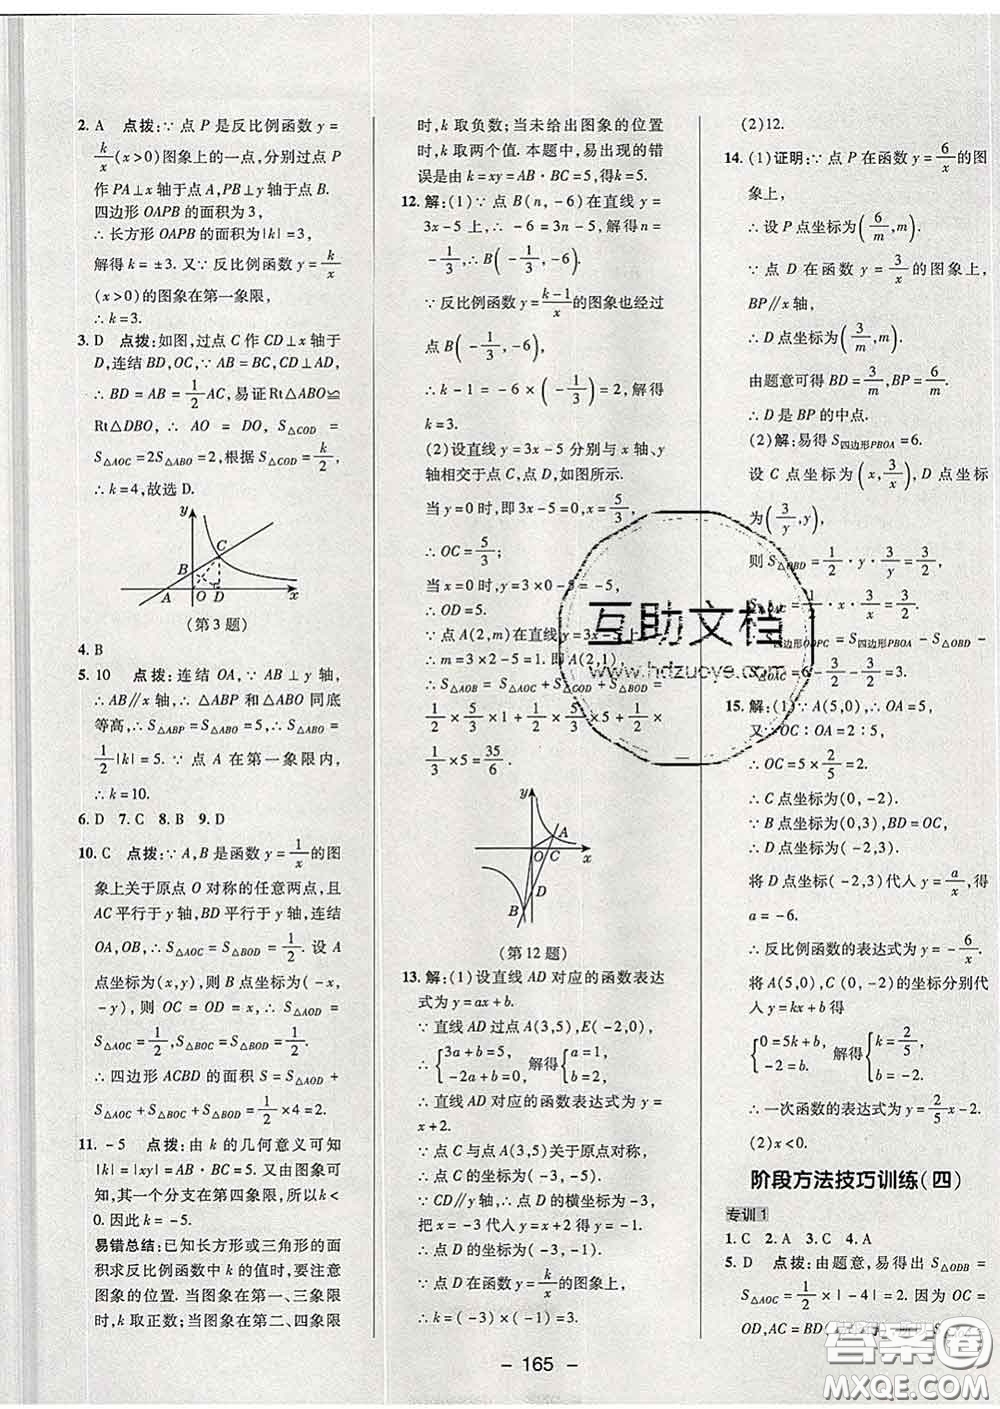 2. A 点拨:∵ 点 P 是反比例函数 y =
k/x (x>0)图象上的一点,分别过点 P
作 PA⊥x 轴于点 A,PB⊥y 轴于点 B.
四边形 OAPB 的面积为 3,
∴ 长方形 OAPB 的面积为|k| = 3,
解得 k = ±3. 又∵ 反比例函数 y = k/x
(x>0)的图象在第一象限,
∴ k = 3.
3. D 点拨:如图,过点 C 作 CD⊥x 轴于
D,连结 BD,OC,∵ AB = BC,CD⊥AD,
∴ BD = AB = 1/2 AC,易证Rt△ABO≌
Rt△DBO,∴ AO = DO,∴ S△COD =
S△AOC = 2S△ABO = 2,根据 S△COD = k/2,
∴ k = 4,故选 D.
y
C
B
A O D x
(第 3 题)
4. B
5. 10 点拨:连结 OA,∵ AB ⊥ y 轴,
∴ AB∥x 轴,∴ △ABP 和△ABO 同底
等高,∴ S△ABP = S△ABO = 5,∴ S△ABO =
1/2 |k| = 5. ∵ 点 A 在第一象限内,
∴ k = 10.
6. D 7. C 8. B 9. D
10. C 点拨:∵ A,B 是函数 y = 1/x 的图
象上关于原点 O 对称的任意两点,且
AC 平行于 y 轴,BD 平行于 y 轴,连结
OA,OB,∴ S△AOC = S△BOD = 1/2. 设 A
点坐标为(x,y),则 B 点坐标为( -x,
-y),则 OC = OD = x,∴ S△AOD =
S△AOC = 1/2,S△BOC = S△BOD = 1/2.
∴ 四边形 ACBD 的面积 S = S△AOD +
S△AOC + S△BOC + S△BOD = 1/2 ×4 = 2.
11. -5 点拨:由 k 的几何意义可知
|k| = |xy| = AB · BC = 5. 又由图象可
知,其一个分支在第四象限,所以 k<
0. 因此 k = -5.
易错总结:已知长方形或三角形的面
积求反比例函数中 k 的值时,要注意
图象的位置. 当图象在第一、三象限
时,k 取正数;当图象在第二、四象限
时,k 取负数;当未给出图象的位置
时,k 取两个值. 本题中,易出现的错
误是由 k = xy = AB · BC = 5,得 k = 5.
12. 解:(1)∵ 点 B(n, -6)在直线 y =
3x -5 上,∴ -6 = 3n -5,解得 n =
-1/3,∴ B( -1/3, -6).
∵ 反比例函数 y = (k-1)/x 的图象也经过
点 B( -1/3, -6),
∴ k -1 = -6 × ( -1/3 ),解得
k = 3.
(2)设直线 y = 3x -5 分别与 x 轴、y
轴相交于点 C,点 D,如图所示.
当 y = 0 时,即 3x -5 = 0,x = 5/3,
∴ OC = 5/3;
当 x = 0 时,y = 3×0 -5 = -5,
∴ OD = 5.
∵ 点 A(2,m)在直线 y = 3x -5 上,
∴ m = 3×2 -5 = 1,即 A(2,1).
∴ S△AOB = S△AOC + S△COD + S△BOD =
1/2 × 5/3 ×1 + 1/2 × 5/3 ×5 + 1/2 ×
1/3 ×5 = 35/6.
y
A
O C x
D
B
(第 12 题)
13. 解:(1)设直线 AD 对应的函数表达
式为 y = ax + b.
∵ 直线 AD 过点 A(3,5),E( -2,0),
∴ { 3a + b = 5, -2a + b = 0, 解得 { a = 1, b = 2.
∴ 直线 AD 对应的函数表达式为 y =
x + 2.
∵ 点 C 与点 A(3,5)关于原点对称,
∴ 点 C 的坐标为( -3, -5).
∵ CD∥y 轴,∴ 点 D 的横坐标为 -3.
把 x = -3 代入 y = x + 2 得,y = -1,
∴ 点 D 的坐标为( -3, -1).
∵ 点 D 在函数 y = k/x 的图象上,
∴ k = ( -3) × ( -1) = 3.
(2)12.
14. (1)证明:∵ 点 P 在函数 y = 6/x 的图
象上,
∴ 设 P 点坐标为(6/m, m).
∵ 点 D 在函数 y = 3/x 的图象上,
BP∥x 轴,
∴ D 点坐标为(3/m, m).
由题意可得 BD = 3/m, BP = 6/m.
∴ D 是 BP 的中点.
(2)解:易得 S四边形PBOA = 6.
设 C 点坐标为(x, 3/x), D 点坐标
为(3/y, y),
则 S△OBD = 1/2 · y · 3/y = 3/2,
S△OAC = 1/2 · x · 3/x = 3/2,
S四边形ODPC = S四边形PBOA - S△OBD -
S△OAC = 6 - 3/2 - 3/2 = 3.
15. 解:(1)∵ A(5,0),∴ OA = 5,
又∵ OC∶OA = 2∶5,
∴ OC = 5 × 2/5 = 2.
∴ C 点坐标为(0, -2).
∵ B 点坐标为(0,3),BD = OC,
∴ D 点坐标为( -2,3).
将 D 点坐标( -2,3)代入 y = a/x,得
a = -6.
∴ 反比例函数的表达式为 y = -6/x.
将 A(5,0), C(0, -2)的坐标分别代
入 y = kx + b 得
{ 0 = 5k + b, -2 = b, 解得 { k = 2/5, b = -2.
∴ 一次函数的表达式为 y = 2/5 x -2.
(2)x<0.
阶段方法技巧训练(四)
专训 1
1. C 2. A 3. C 4. A
5. D 点拨:由题意,易得出 S△ODB =
S△AOC = 1/2 × | -4| = 2. 因为 OC =
OD,AC = BD
- 165 -
互助文档
www.hdzuoye.com
答案圈
MXQE.COM